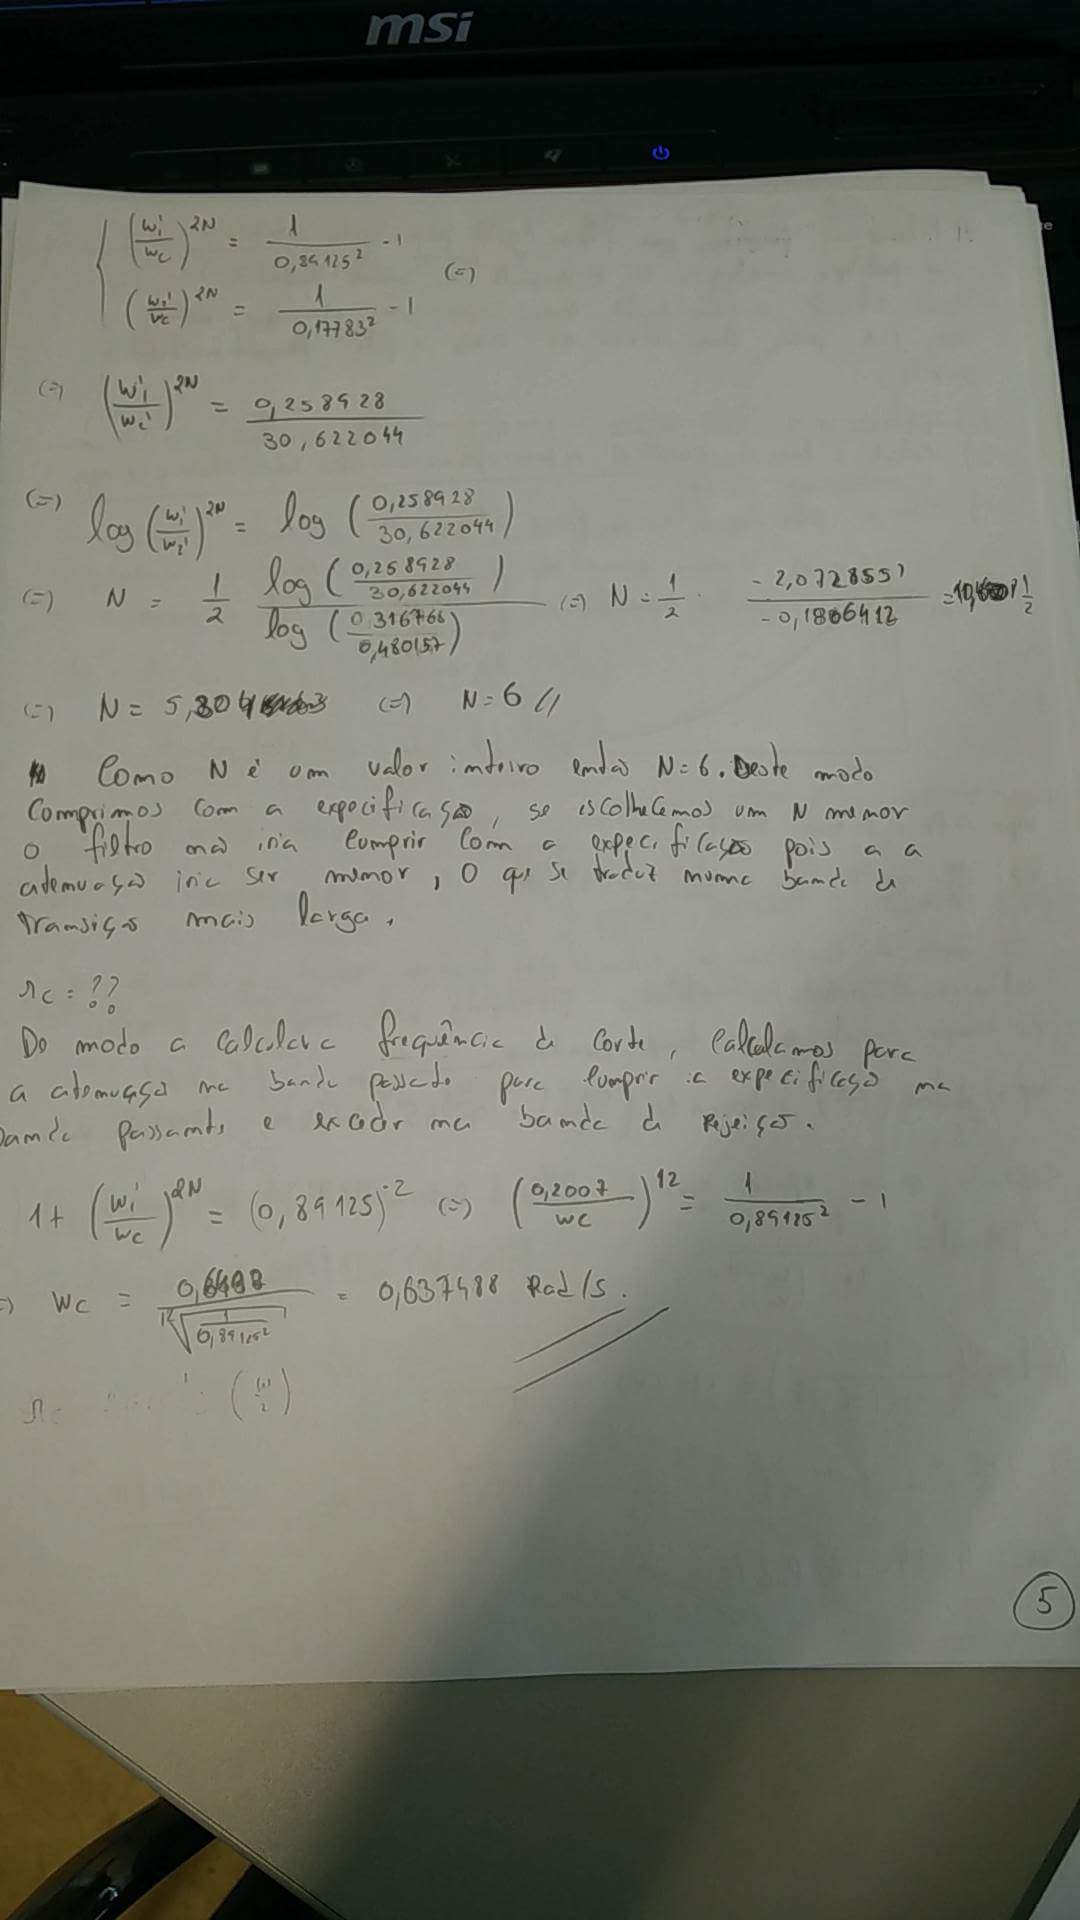 msi
(w₁'/wc)^2N = 1/0,89125² - 1
(=)
(w₂'/wc)^2N = 1/0,17783² - 1
(=) (w₁'/w₂')^2N = 0,258928/30,622044
(=) log (w₁'/w₂')^2N = log (0,258928/30,622044)
(=) N = 1/2 log (0,258928/30,622044) / log (0,316766/0,480157) (=) N = 1/2 · -2,0728551/-0,1806412 = 1/2
(=) N = 5,804 (=) N = 6 //
Como N é um valor inteiro então N=6. Deste modo
comprimos com a expecificação, se escolhecemos um N menor
o filtro não iria cumprir com a expecificação pois a a
atenuação iria ser menor, o que se traduz numa banda de
transição mais larga.
Ωc = ??
De modo a calcular a frequência de corte, calculamos para
a atenuação na banda passado para cumprir a expecificação na
banda passante e exceder na banda de rejeição.
1+ (w₁'/wc)^2N = (0,89125)^-2 (=) (0,2007/wc)^12 = 1/0,89125² - 1
=) wc = / ¹²√(1/0,89125²) = 0,637488 Rad/s.
(w/2)
5